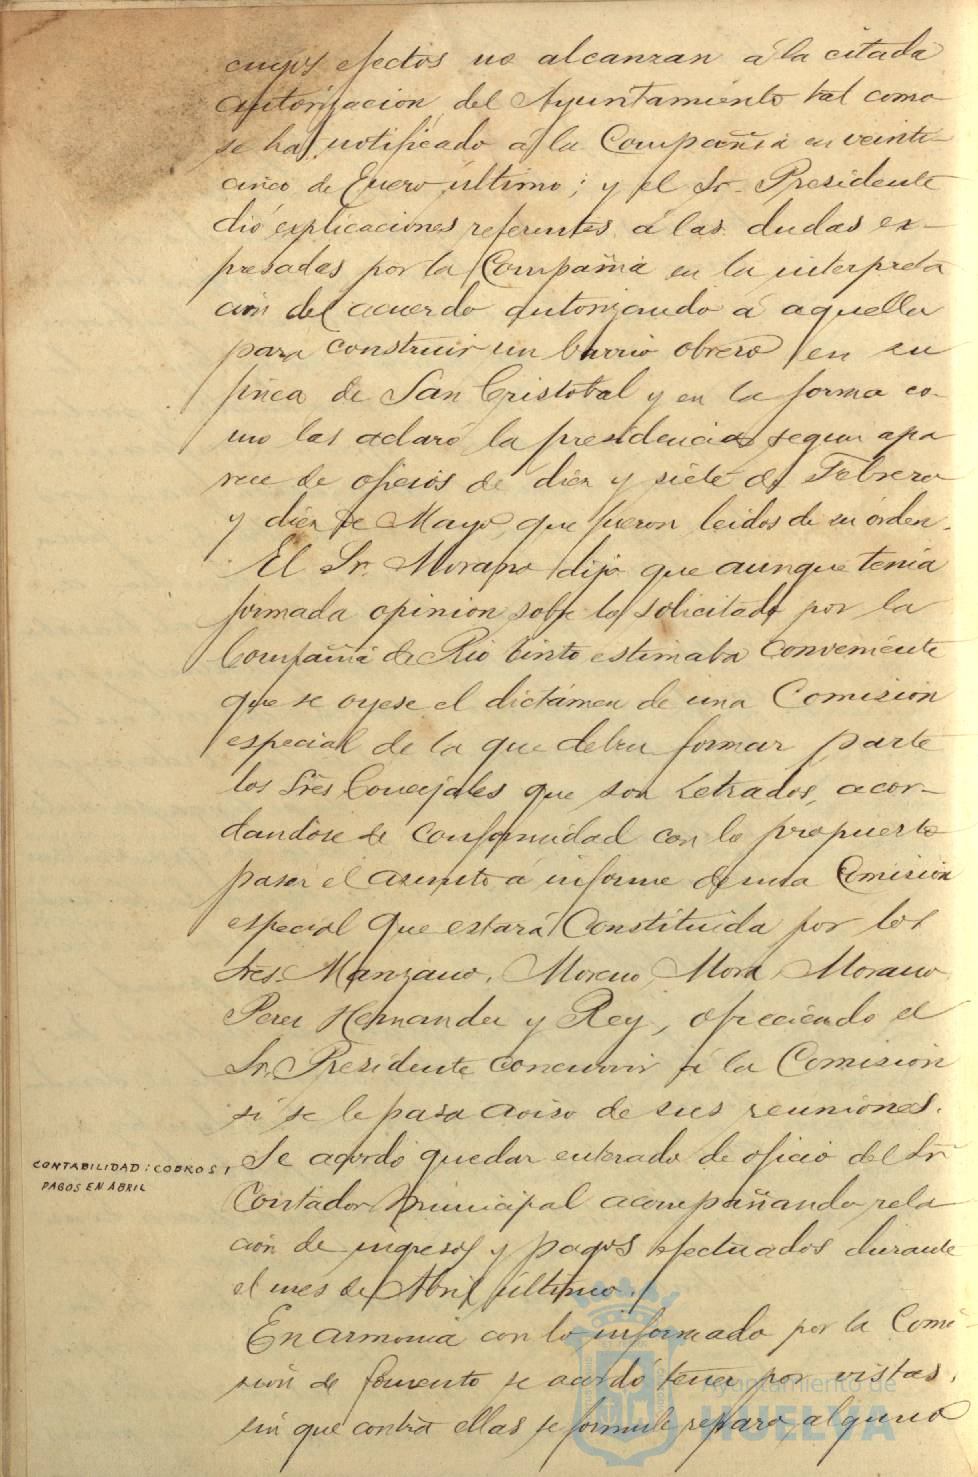 cuyos efectos no alcanzan á la citada
autorizacion del Ayuntamiento tal como
se ha notificado á la Compañia en veinti-
cinco de Enero último; y el Sr. Presidente
dió explicaciones referentes á las dudas ex-
presadas por la Compañia en la interpreta
ción del acuerdo autorizando á aquella
para construir un barrio obrero en su
finca de San Cristobal y en la forma co-
mo las aclaró la presidencia segun apa
rece de oficios de diez y siete de Febrero
y diez de Mayo, que fueron leidos de su órden.
El Sr. Morano dijo que aunque tenia
formada opinion sobre lo solicitado por la
Compañia de Rio tinto estimaba conveniente
que se oyese el dictámen de una Comision
especial de la que deben formar parte
los Sres Concejales que son Letrados, acor-
dandose de conformidad con lo propuesto
pasar el asunto á informe de una Comision
especial que estará Constituida por los
Sres. Manzano, Moreno, Mora, Morano,
Perez Hernandez y Rey, ofreciendo el
Sr. Presidente concurrir á la Comision
si se le pasa aviso de sus reuniones.
CONTABILIDAD: COBROS Y
PAGOS EN ABRIL
Se acordó quedar enterado de oficio del Sr
Contador Municipal acompañando rela
ción de ingresos y pagos efectuados durante
el mes de Abril último.
En armonia con lo informado por la Comi-
sion de fomento se acordó tener por vistas,
sin que contra ellas se formule reparo alguno
Ayuntamiento de
HUELVA